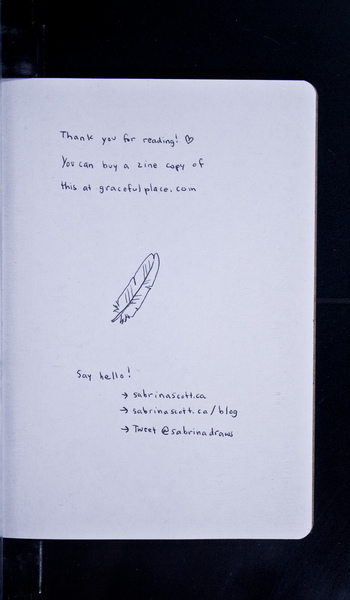 Thank you for reading! ♡
You can buy a zine copy of
this at gracefulplace.com
Say hello!
→ sabrinascott.ca
→ sabrinascott.ca/blog
→ Tweet @sabrinadraws